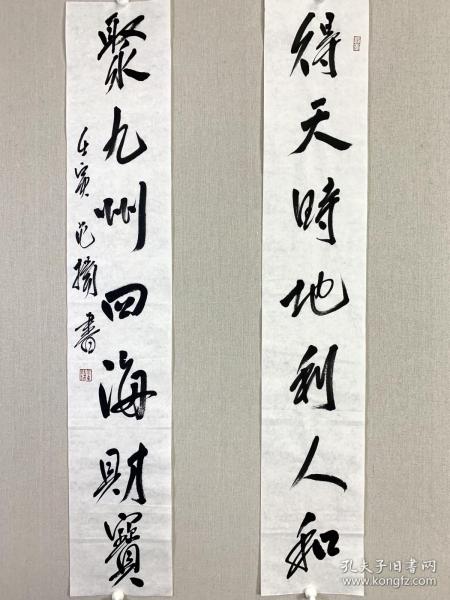 得天時地利人和
聚九州四海財寶
壬寅 范 書
孔夫子旧书网
www.kongfz.com